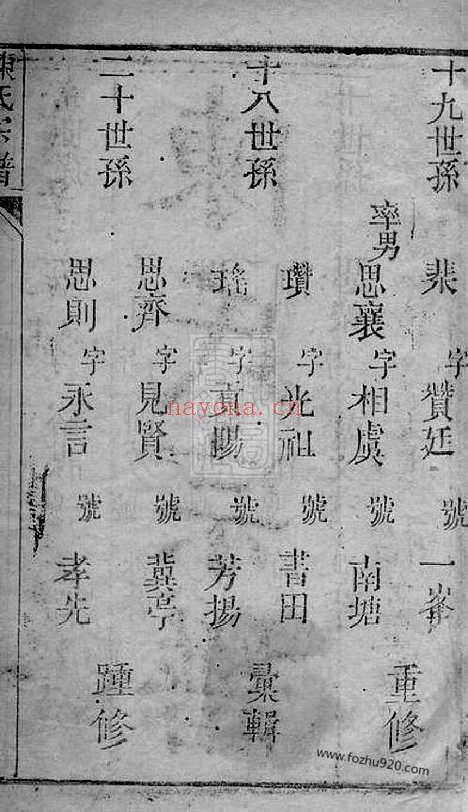 十九世孫
裴 字贊廷 號一峯
率男思襄 字相虞 號南塘
重修
十八世孫
瓚 字光祖 號書田
瑤 字 號芳揚
彙輯
二十世孫
思齊 字見賢 號冀亭
思則 字永言 號孝先
踵修
陳氏宗譜
nayona.cn
www.fozhu920.com